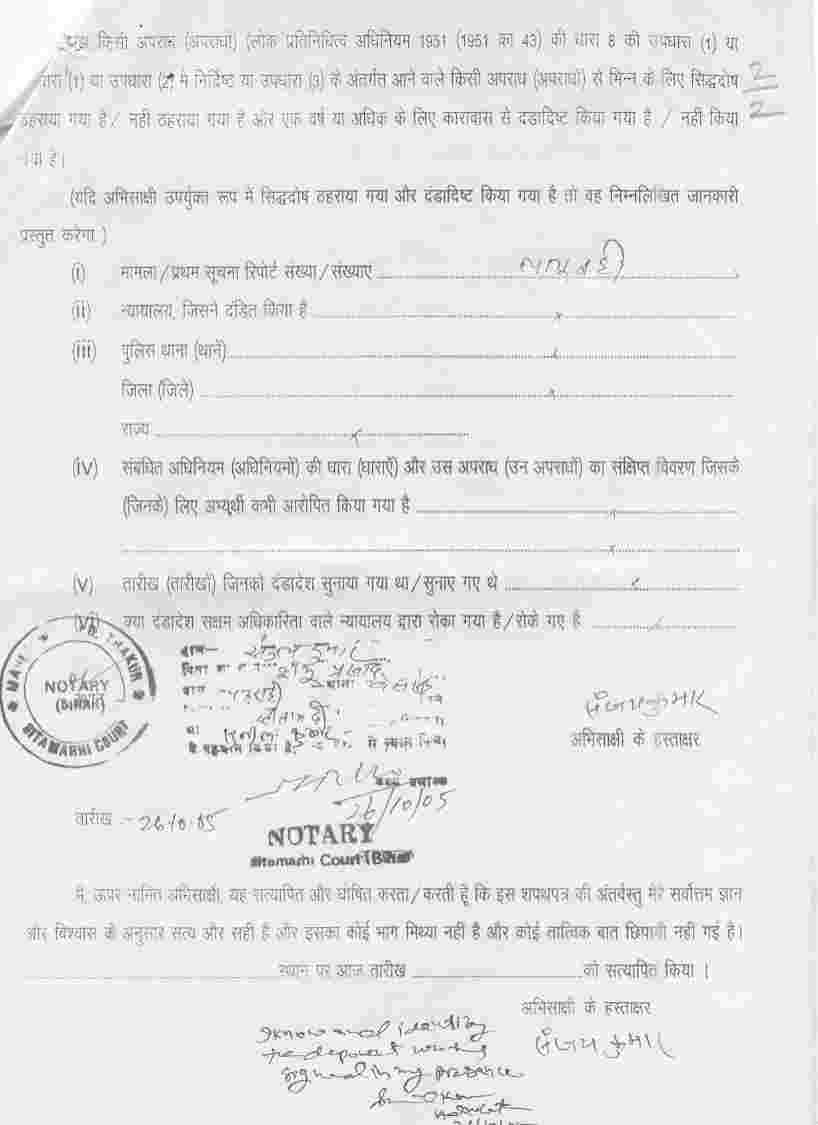 किसी अपराध (अपराधों) (लोक प्रतिनिधित्व अधिनियम 1951 (1951 का 43) की धारा 8 की उपधारा (1) या
(1) या उपधारा (2) में निर्दिष्ट या उपधारा (3) के अंतर्गत आने वाले किसी अपराध (अपराधों) से भिन्न के लिए सिद्धदोष
2/2
ठहराया गया है / नहीं ठहराया गया है और एक वर्ष या अधिक के लिए कारावास से दंडादिष्ट किया गया है / नहीं किया
गया है।
(यदि अभिसाक्षी उपर्युक्त रूप में सिद्धदोष ठहराया गया और दंडादिष्ट किया गया है तो वह निम्नलिखित जानकारी
प्रस्तुत करेगा )
(i) मामला/प्रथम सूचना रिपोर्ट संख्या/संख्याएं
(ii) न्यायालय, जिसने दंडित किया है x
(iii) पुलिस थाना (थाने) x
जिला (जिले) x
राज्य x
(iv) संबंधित अधिनियम (अधिनियमों) की धारा (धाराएँ) और उस अपराध (उन अपराधों) का संक्षिप्त विवरण जिसके
(जिनके) लिए अभ्यर्थी कभी आरोपित किया गया है x
x
(v) तारीख (तारीखों) जिनको दंडादेश सुनाया गया था/सुनाए गए थे
(vi) क्या दंडादेश सक्षम अधिकारिता वाले न्यायालय द्वारा रोका गया है/रोके गए है
THAKUR
NOTARY
(BIHAR)
SITAMARHI COURT
संजय कुमार
अभिसाक्षी के हस्ताक्षर
26/10/05
तारीख :- 26.10.05
NOTARY
Sitamarhi Court (Bihar)
मैं, ऊपर नामित अभिसाक्षी, यह सत्यापित और घोषित करता/करती हूँ कि इस शपथपत्र की अंतर्वस्तु मेरे सर्वोत्तम ज्ञान
और विश्वास के अनुसार सत्य और सही है और इसका कोई भाग मिथ्या नहीं है और कोई तात्विक बात छिपायी नहीं गई है।
स्थान पर आज तारीख को सत्यापित किया ।
अभिसाक्षी के हस्ताक्षर
संजय कुमार
I know and identify
the deponent
signed in my presence
Advocate